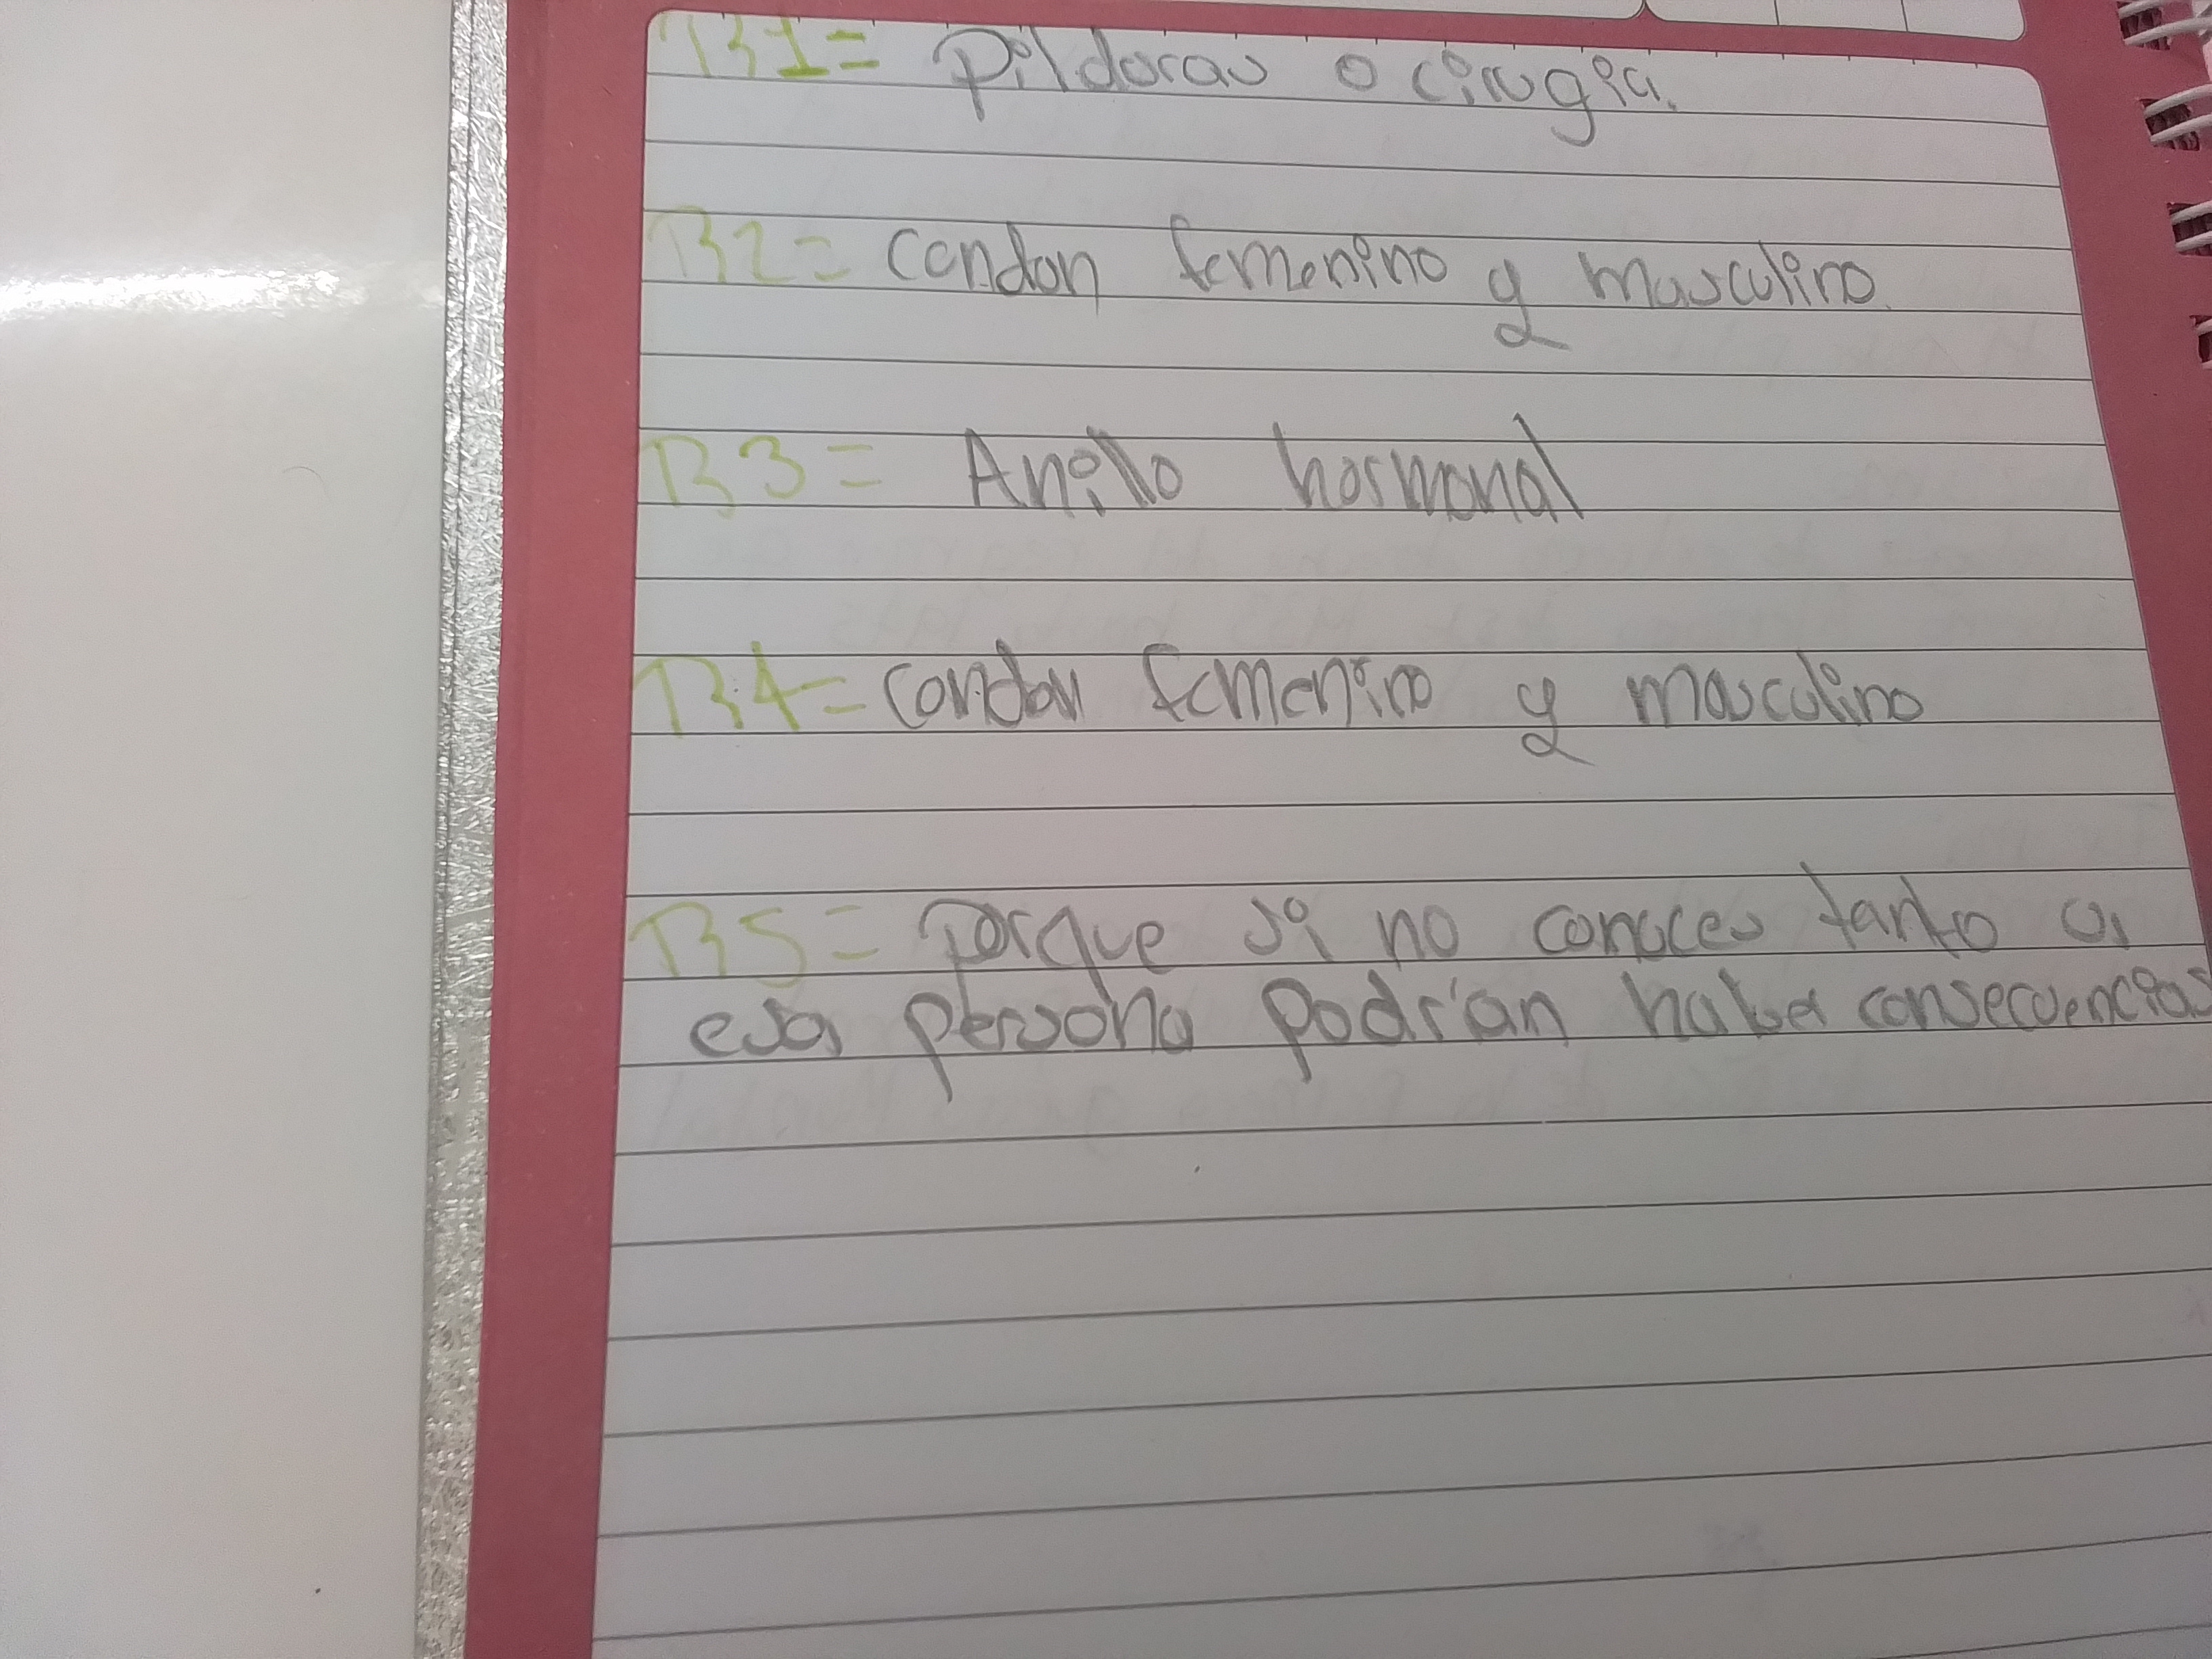 R1= Pildoras o cirugia.
R2= Condon femenino y masculino.
R3= Anillo hormonal
R4= Condon femenino y masculino
R5= Porque si no conoces tanto a
esa persona podrian haber consecuencias